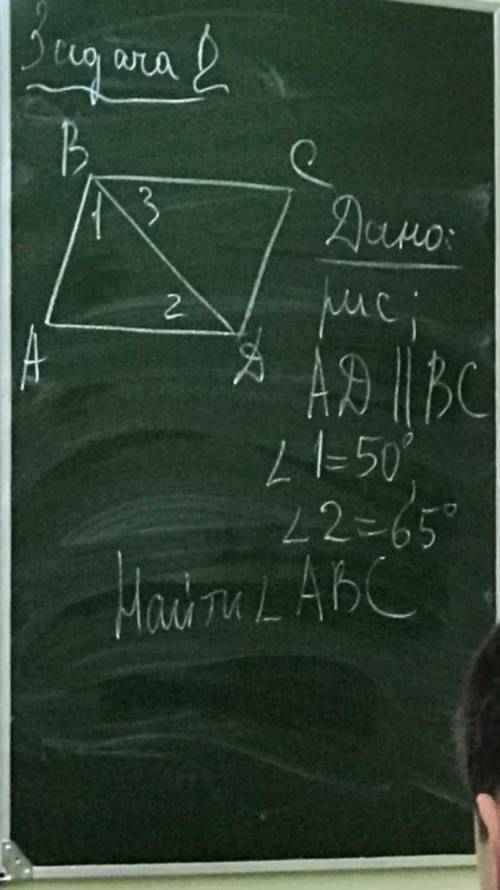 Задача 2
B C
1 3
2
A D
Дано:
рис;
AD || BC
∠1=50°,
∠2=65°
Найти ∠ABC